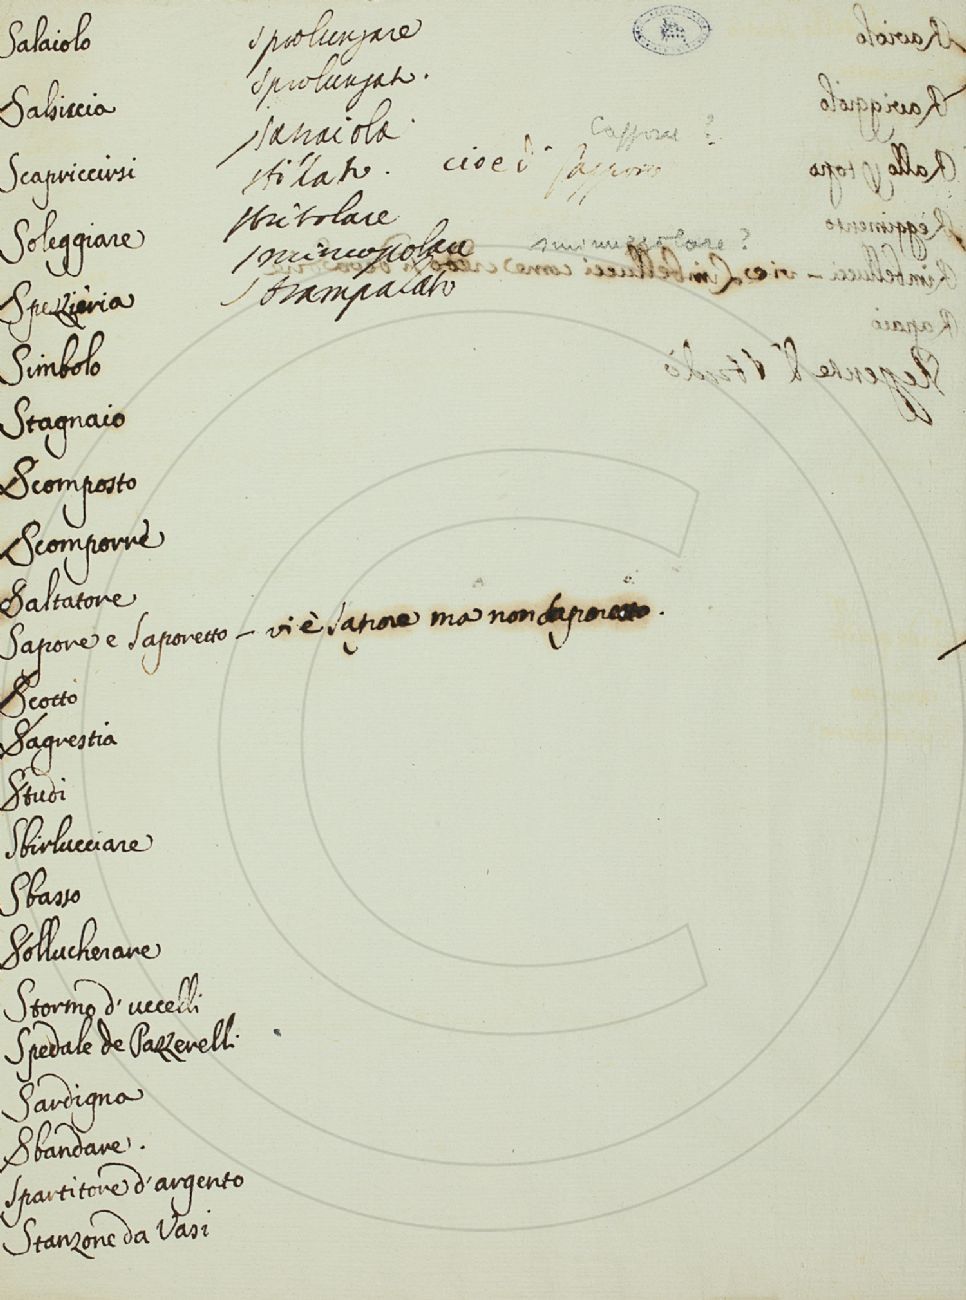 Salaiolo
Salsiccia
Scapriccirsi
Soleggiare
Spezzieria
Simbolo
Stagnaio
Scomposto
Scomporre
Saltatore
Sapore e Saporetto – vi è Sapore ma non Saporetto.
Scotto
Sagrestia
Studi
Sbirlucciare
Sbasso
Sollucherare
Stormo d'uccelli
Spedale de Pazzerelli
Sardigna
Sbandare.
Spartitore d'argento
Stanzone da Vasi
sprolungare
sprolungato.
stilato. cioe di
stritolare
sminuzzolare?
strampalato
Raviolo
Raviggiolo
Rallo Stopa
Reggimento
Rimbellucci – vi è Rimbellucci come
Rapaio
Reggente d'